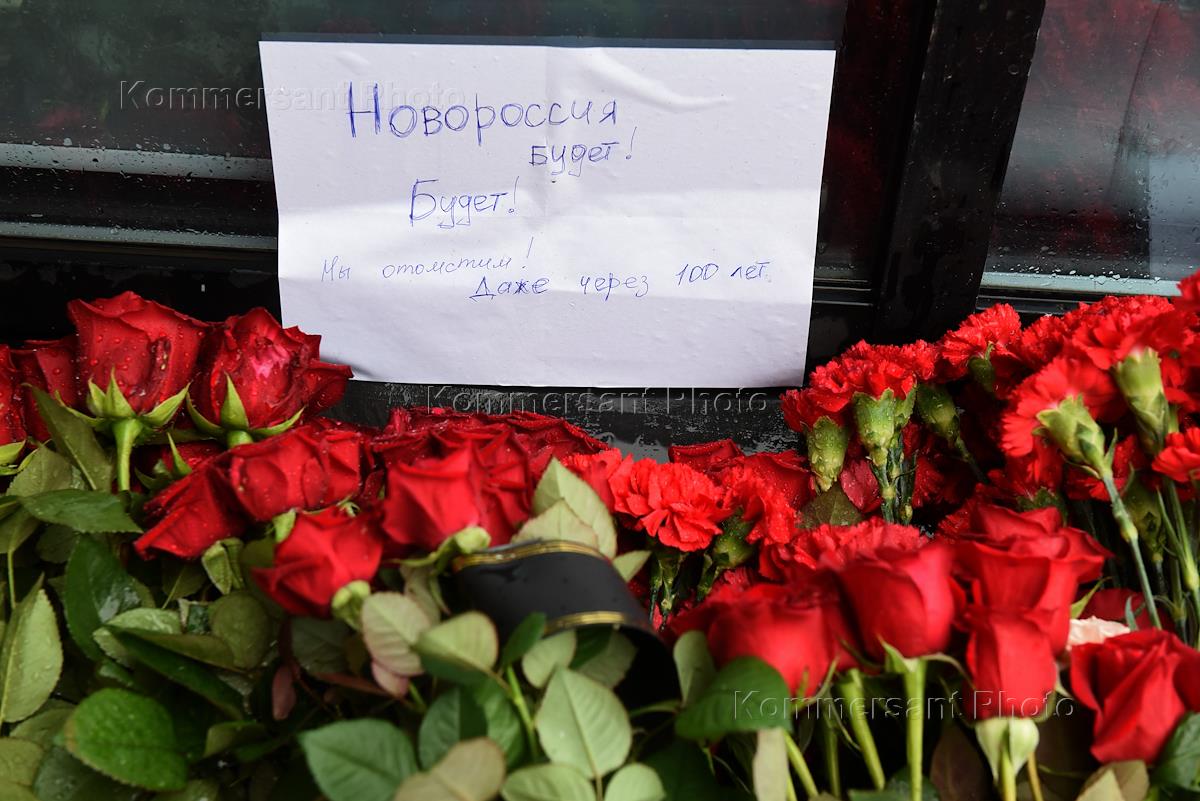 Kommersant Photo
Новороссия
будет!
Будет!
Мы отомстим!
Даже через 100 лет.
Kommersant Photo
Kommersant Photo